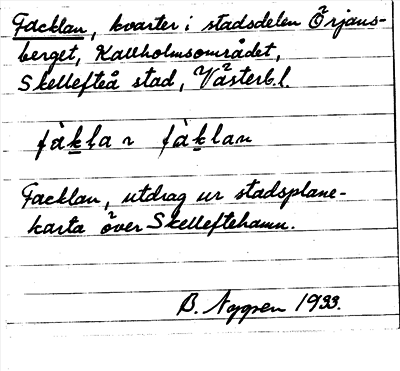 Facklan, kvarter i stadsdelen Örjans-
berget, Kallholmsområdet,
Skellefteå stad, Västerb.l.
fàkla ~ fàklan
Facklan, utdrag ur stadsplane-
karta över Skelleftehamn.
B. Nygren 1933.